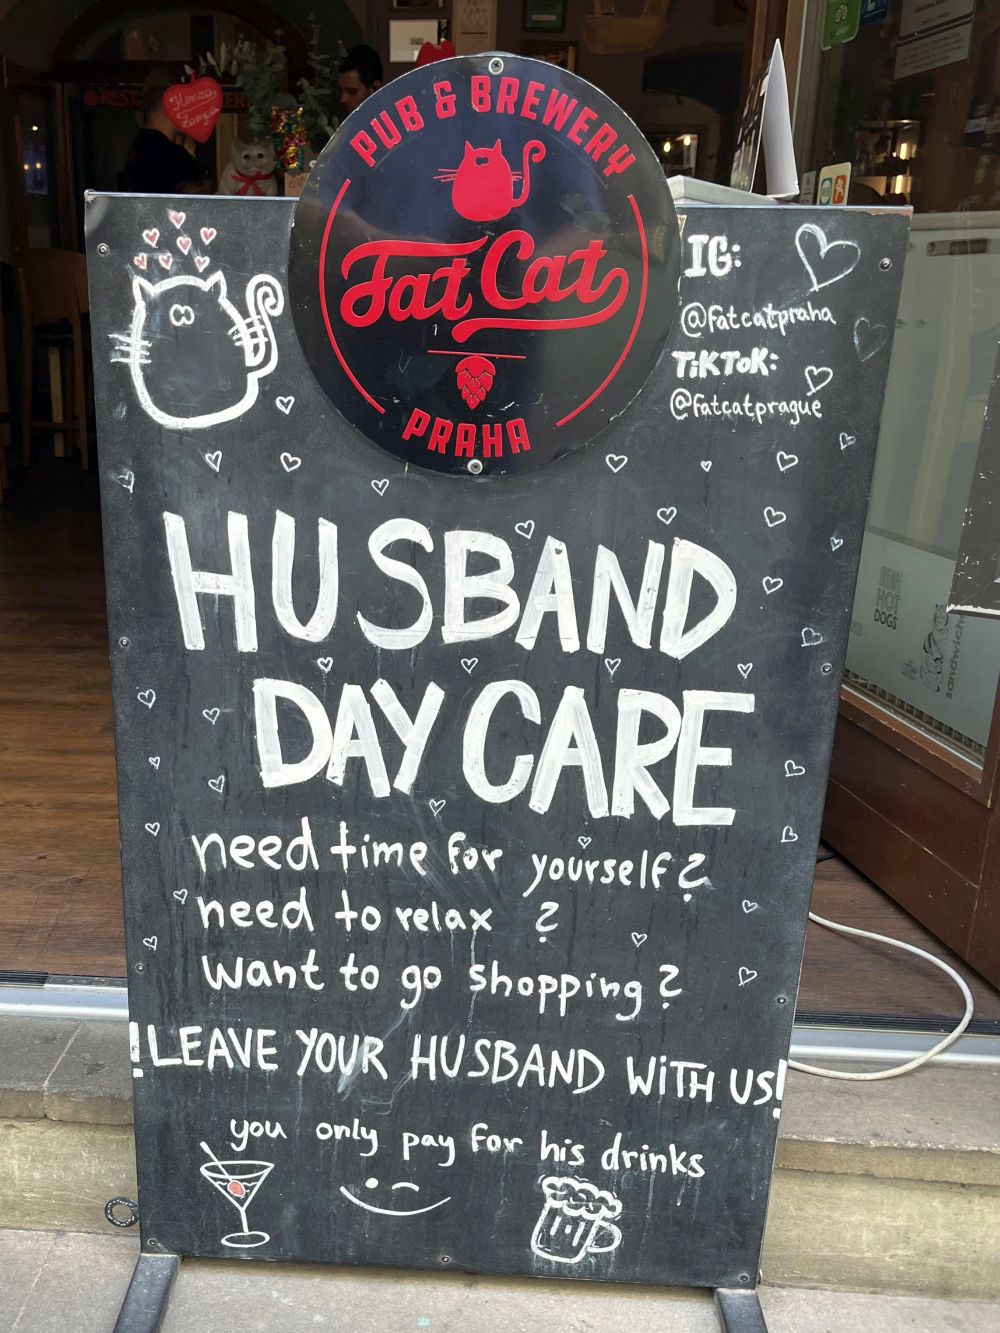 PUB & BREWERY
Fat Cat
PRAHA
IG:
@fatcatpraha
TiKToK:
@fatcatprague
HUSBAND
DAY CARE
need time for yourself?
need to relax ?
want to go shopping?
!LEAVE YOUR HUSBAND WiTH US!
you only pay for his drinks
Honza
HOT
DOGS
sandwich